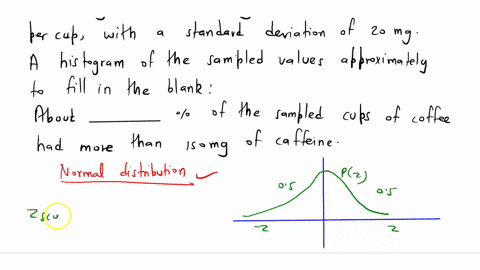 per cup, with a standard deviation of 20 mg.
A histogram of the sampled values approximately
to fill in the blank:
About ________ % of the sampled cups of coffee
had more than 150mg of caffeine.
Normal distribution ✓
P(z)
0.5
0.5
Z scu
-2
2